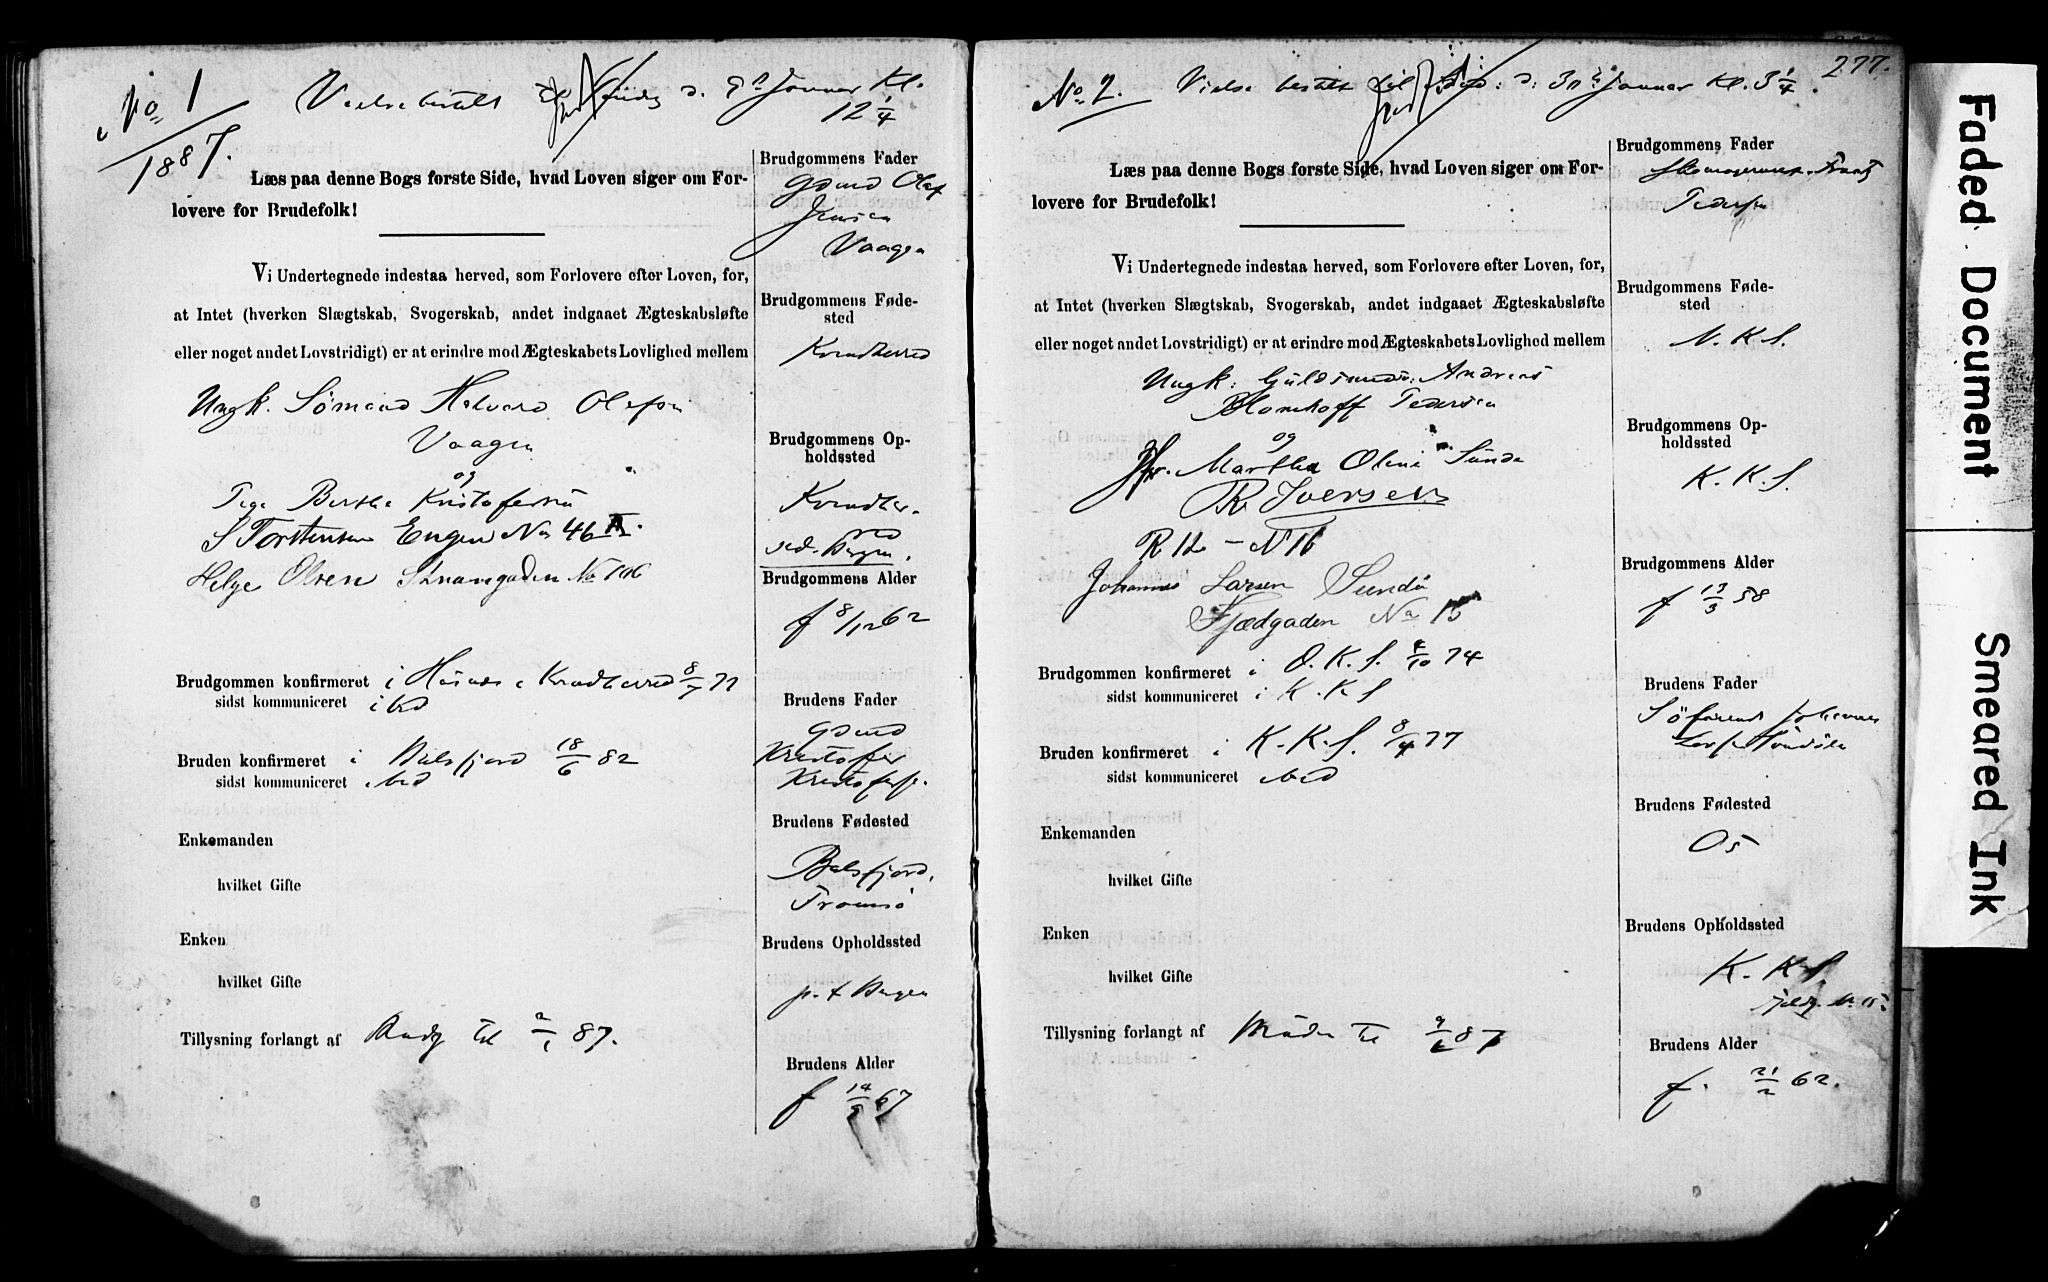 No 1
1887.
Vielse bestilt d. 9de Januar Kl. 12 1/4
Læs paa denne Bogs første Side, hvad Loven siger om For-
lovere for Brudefolk!
Vi Undertegnede indestaa herved, som Forlovere efter Loven, for,
at Intet (hverken Slægtskab, Svogerskab, andet indgaaet Ægteskabsløfte
eller noget andet Lovstridigt) er at erindre mod Ægteskabets Lovlighed mellem
Ungk. Sømand Halvard Olsen
Vaagen
og
Pige Bertha Kristofersen
S Torstensen Engen No 46 A.
Helge Olsen
Brudgommen konfirmeret i Kvindherred 8/7 77
sidst kommuniceret ibid
Bruden konfirmeret i Balsfjord 18/6 82
sidst kommuniceret ibid
Enkemanden
hvilket Gifte
Enken
hvilket Gifte
Tillysning forlangt af Brudg til 2/1 87.
Brudgommens Fader
Gmd Olaf
Jensen
Vaagen
Brudgommens Føde-
sted
Kvindherred
Brudgommens Op-
holdssted
Kvindher-
red
ved Bergen.
Brudgommens Alder
f 8/12 62
Brudens Fader
Gmd
Kristofer
Kristofers.
Brudens Fødested
Balsfjord,
Tromsø
Brudens Opholdssted
p. t Bergen
Brudens Alder
f 14/9 67
277.
No 2. Vielse bestilt til d: 30te Januar Kl. 3 1/4.
Læs paa denne Bogs første Side, hvad Loven siger om For-
lovere for Brudefolk!
Vi Undertegnede indestaa herved, som Forlovere efter Loven, for,
at Intet (hverken Slægtskab, Svogerskab, andet indgaaet Ægteskabsløfte
eller noget andet Lovstridigt) er at erindre mod Ægteskabets Lovlighed mellem
Ungk: Guldsmed: Andreas
Blomhoff Pedersen
og
Jfr. Martha Oline Sunde
R Iversen
R 12 - N 16
Johannes Larsen Sundö
Fjeldgaden No 15
Brudgommen konfirmeret i D. K. S. 4/10 74
sidst kommuniceret i K. K S
Bruden konfirmeret i K. K. S. 8/4 77
sidst kommuniceret ibid
Enkemanden
hvilket Gifte
Enken
hvilket Gifte
Tillysning forlangt af Moder til 9/1 87
Brudgommens Fader
Skomagermst. Frantz
Pedersen
Brudgommens Føde-
sted
N. K. S.
Brudgommens Op-
holdssted
K. K. S.
Brudgommens Alder
f 13/3 58
Brudens Fader
Søfarende Johannes
Brudens Fødested
Os
Brudens Opholdssted
K. K. S.
Fjeldg. No. 15
Brudens Alder
f. 21/2 62.
Faded Document
Smeared Ink